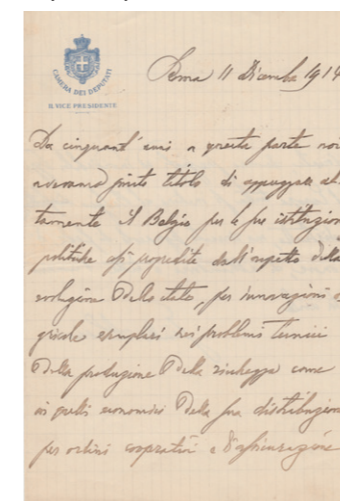 CAMERA DEI DEPUTATI
IL VICE PRESIDENTE
Roma 11 Dicembre 1914
Da cinquant'anni a questa parte noi
avevamo giusto titolo di
tamente il Belgio per le sue istituzioni
politiche dall'aspetto della
dello stato, per innovazioni a
gricole esemplari nei problemi tecnici
della produzione della ricchezza come
in quelli economici della sua distribuzione
per ordini cooperativi e d'assicurazione